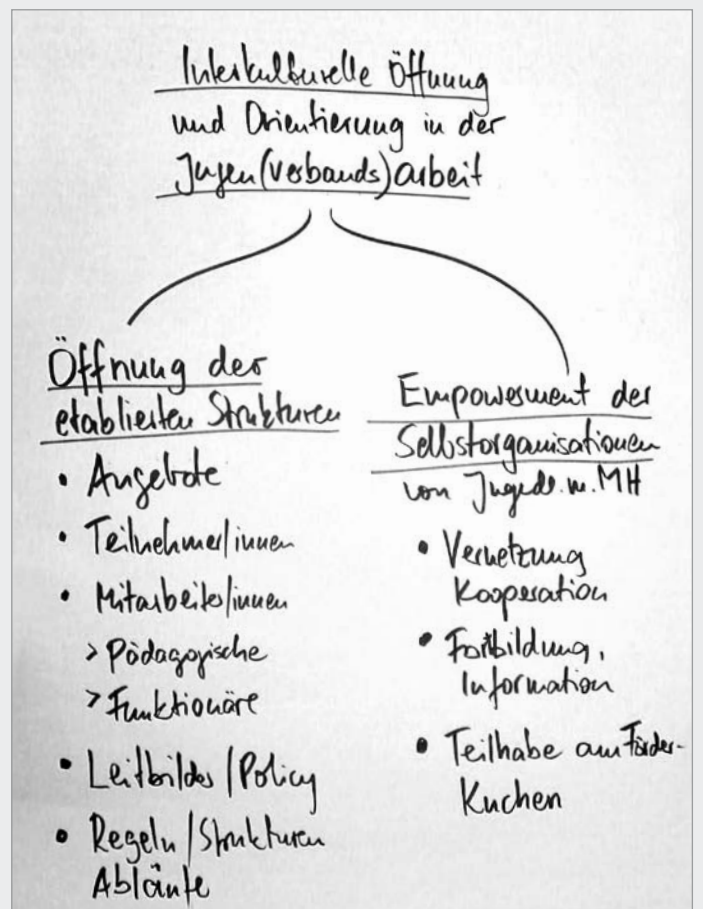 Interkulturelle Öffnung
und Orientierung in der
Jugen(verbands)arbeit
Öffnung der
etablierten Strukturen
• Angebote
• Teilnehmer/innen
• Mitarbeiter/innen
> Pädagogische
> Funktionäre
• Leitbilder/Policy
• Regeln/Strukturen
Abläufe
Empowerment der
Selbstorganisationen
von Jugendl. m. MH
• Vernetzung
Kooperation
• Fortbildung,
Information
• Teilhabe am Förder-
Kuchen